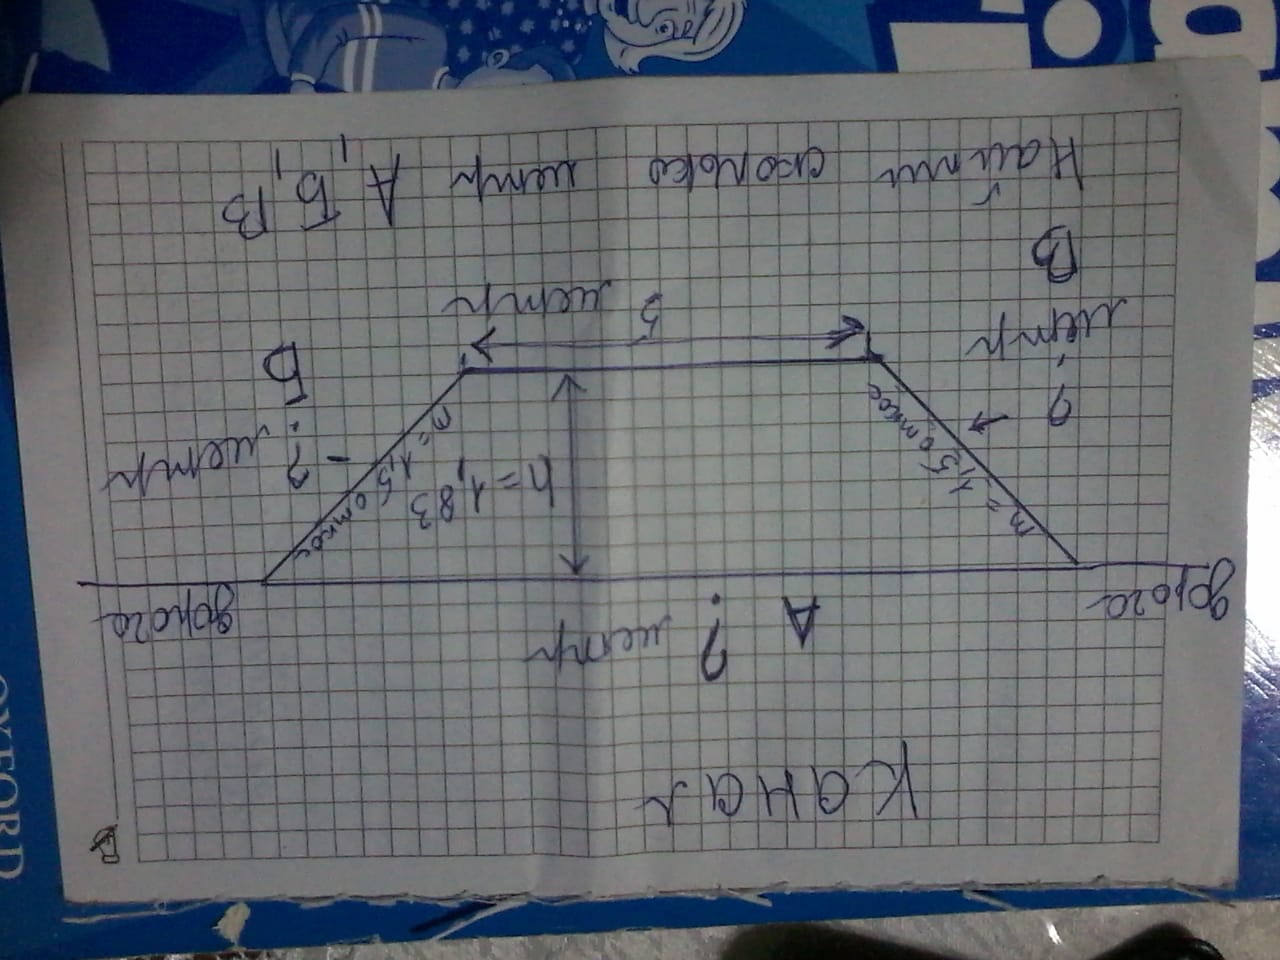 Канал
А
? метр
дорога
дорога
m = 1,5 откос
h = 1,83
m = 1,50 откос
? метр
Б
?
метр
В
5 метр
Найти сколько метр А, Б, В
OXFORD